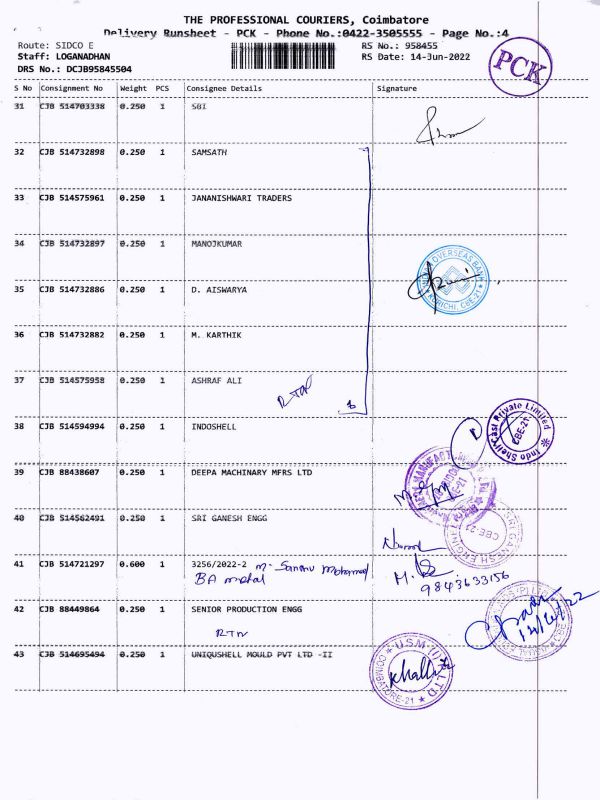 THE PROFESSIONAL COURIERS, Coimbatore
Delivery Runsheet - PCK - Phone No.:0422-3505555 - Page No.:4
Route: SIDCO E RS No.: 958455
Staff: LOGANADHAN RS Date: 14-Jun-2022
DRS No.: DCJB95845504
PCK
S No Consignment No Weight PCS Consignee Details Signature
31 CJB 514703338 0.250 1 SBI
32 CJB 514732898 0.250 1 SAMSATH
33 CJB 514575961 0.250 1 JANANISHWARI TRADERS
34 CJB 514732897 0.250 1 MANOJKUMAR
OVERSEAS BANK
35 CJB 514732886 0.250 1 D. AISWARYA
KURICHI, CBE-21
36 CJB 514732882 0.250 1 M. KARTHIK
37 CJB 514575958 0.250 1 ASHRAF ALI
6
38 CJB 514594994 0.250 1 INDOSHELL
Indo Shell Cast Private Limited
CBE-21
39 CJB 88438607 0.250 1 DEEPA MACHINARY MFRS LTD
40 CJB 514562491 0.250 1 SRI GANESH ENGG
SRI GANESH ENGINEE
CBE-21
41 CJB 514721297 0.600 1 3256/2022-2 M- Mohamed
BA metal
9843633156
42 CJB 88449864 0.250 1 SENIOR PRODUCTION ENGG
RTN
43 CJB 514695494 0.250 1 UNIQUSHELL MOULD PVT LTD -II
U.S.M (I) P LTD
COIMBATORE-21